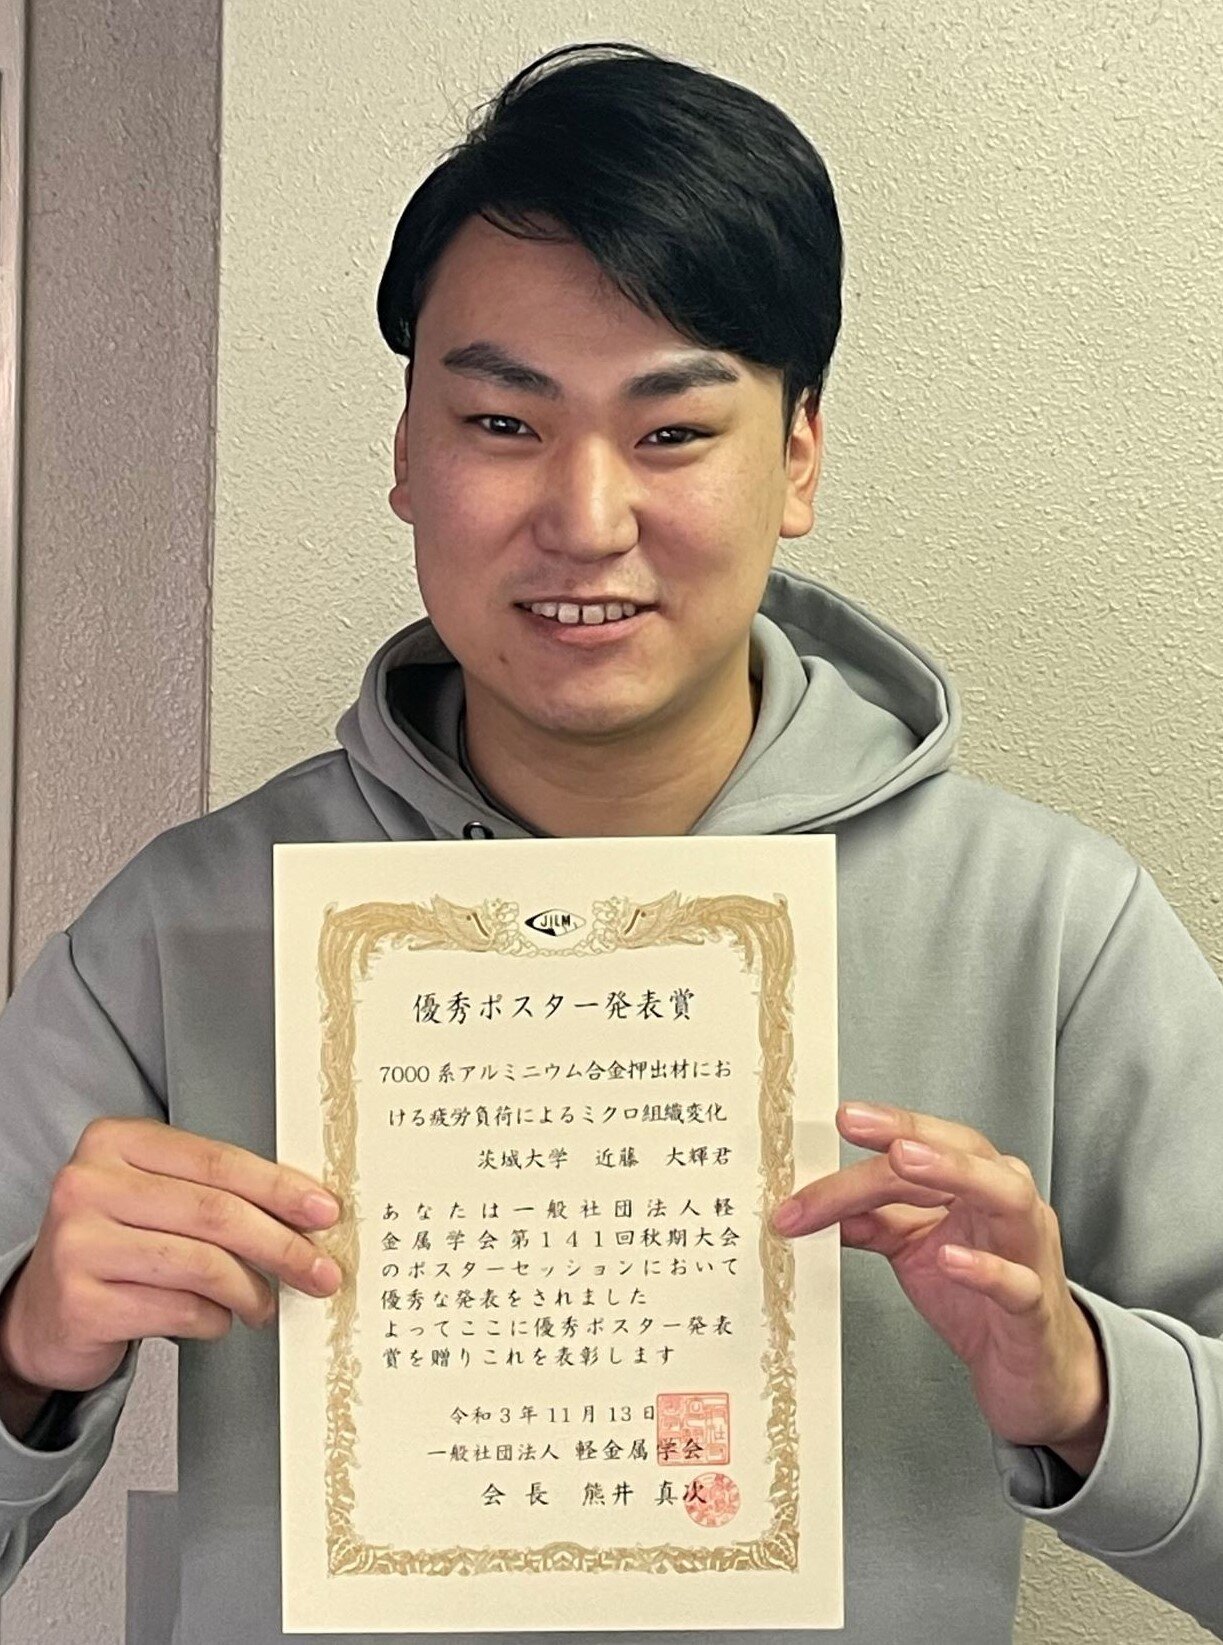 JILM
優秀ポスター発表賞
7000系アルミニウム合金押出材にお
ける疲労負荷によるミクロ組織変化
茨城大学 近藤 大輝君
あなたは一般社団法人軽
金属学会第141回秋期大会
のポスターセッションにおいて
優秀な発表をされました
よってここに優秀ポスター発表
賞を贈りこれを表彰します
令和3年11月13日
一般社団法人 軽金属学会
会長 熊井 真次